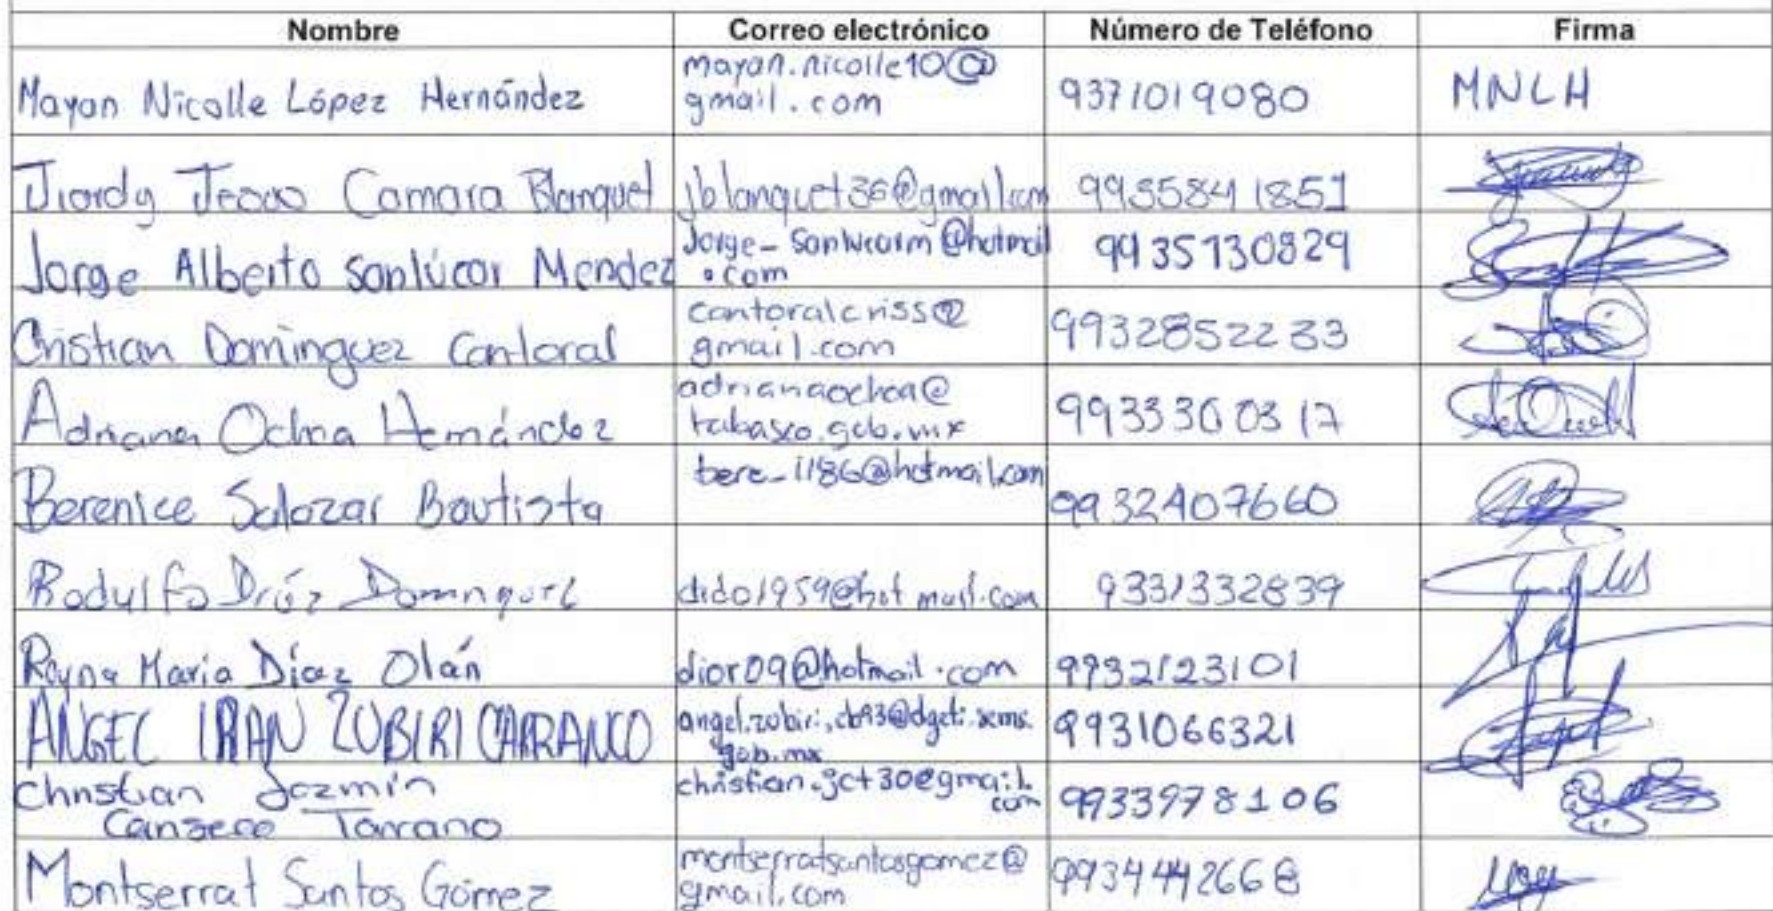 Nombre Correo electrónico Número de Teléfono Firma
Mayan Nicolle López Hernández mayan.nicolle10@
gmail.com 9371019080 MNLH
Jiordy Camara Blanquet jblanquet36@gmail.com 9935841851
Jorge Alberto Sanlúcar Mendez @hotmail
.com 9935130829
Cristian Dominguez Cantoral cantoralcriss@
gmail.com 9932852233
Adriana Ochoa Hernández adrianaochoa@
tabasco.gob.mx 9933300317
Berenice Salazar Bautista bere_1186@hotmail.com 9932407660
Rodulfo Díaz dido1959@hotmail.com 9331332839
Reyna Maria Díaz Olán dior09@hotmail.com 9932123101
ANGEL IRAN ZUBIRI CARRANCO angel.zubiri.cb93@dgeti.sems.
gob.mx 9931066321
Christian Jazmín
Canseco christian.jct30@gmail.
com 9933978106
Montserrat Santos Gómez montserratsantosgomez@
gmail.com 9934442668